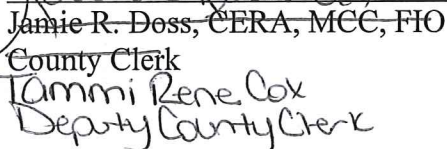 Jamie R. Doss, CERA, MCC, FIO
County Clerk
Tammi Rene Cox
Deputy County Clerk